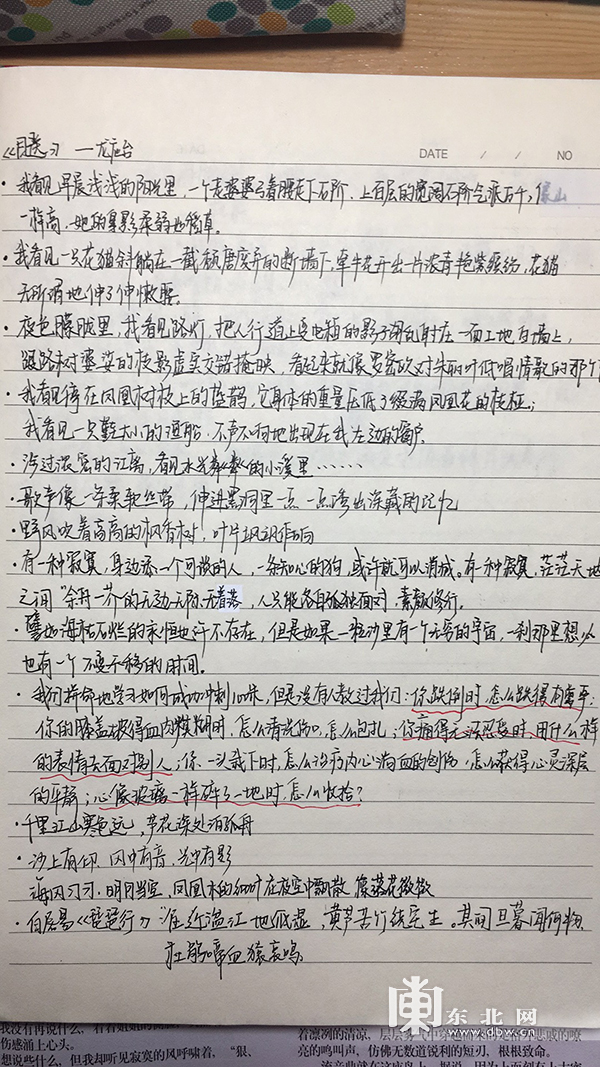 《目送》 —龙应台
DATE / / NO
·我看见早晨浅浅的阳光里，一个老婆婆弓着腰走下石阶，上百层的宽阔石阶气派万千，像山
一样高，她的身影柔弱也简单。
·我看见一只花猫斜躺在一截颓唐废弃的断墙下，牵牛花开出一片浓青艳紫缤纷，花猫
无所谓地伸了伸懒腰。
·夜色朦胧里，我看见路灯，把人行道上变电箱的影子胡乱射在一面工地白墙上，
跟路树婆娑的枝影虚实交错掩映，看起来就像罗密欧对朱丽叶低唱情歌的那个
·我看见停在凤凰树枝上的蓝鹊，它身体的重量压低了缀满凤凰花的枝桠；
我看见一只鞋大小的渔船，不声不响地出现在我左边的窗户
·涉过浓密的江离，看见水光粼粼的小溪里……
·歌声像一条柔软丝带，伸进黑洞里一点一点诱出深藏的记忆
·野风吹着高高的枫香树，叶片飒飒作响
·有一种寂寞，身边添一个可谈的人，一条知心的狗，或许就可以消减。有一种寂寞，茫茫天地
之间“余舟一芥”的无边无际无着落，人只能各自孤独面对，素颜修行。
·譬如海枯石烂的永恒也许不存在，但是如果一粒沙里有一个无穷的宇宙，一刹那里想必
也有一个不变不移的时间。
·我们拼命地学习如何成功冲刺100米，但是没有人教过我们：你跌倒时，怎么跌得有尊严；
你的膝盖破得血肉模糊时，怎么清洗伤口，怎么包扎；你痛得无法忍受时，用什么样
的表情去面对别人；你一头栽下时，怎么治疗内心淌血的创伤，怎么获得心灵深层
的平静；心像玻璃一样碎了一地时，怎么收拾？
·千里江山寒色远，芦花深处泊孤舟
·沙上有印，风中有音，光中有影
海风习习，明月当空，凤凰木的细叶在夜空中飘散 像落花微微
·白居易《琵琶行》“住近湓江地低湿，黄芦苦竹绕宅生。其间旦暮闻何物
杜鹃啼血猿哀鸣
东北网
www.dbw.cn
伤感涌上心头。
想说些什么，但我却听见寂寞的风呼啸着，“狠、
亮的鸣叫声，仿佛无数道锐利的短刃，根根致命。